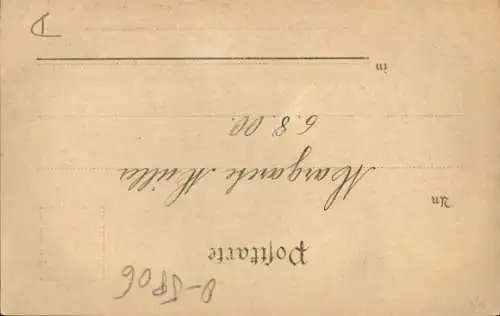 D-5806
Postkarte
An
Margarete Müller
6.8.00.
in
D